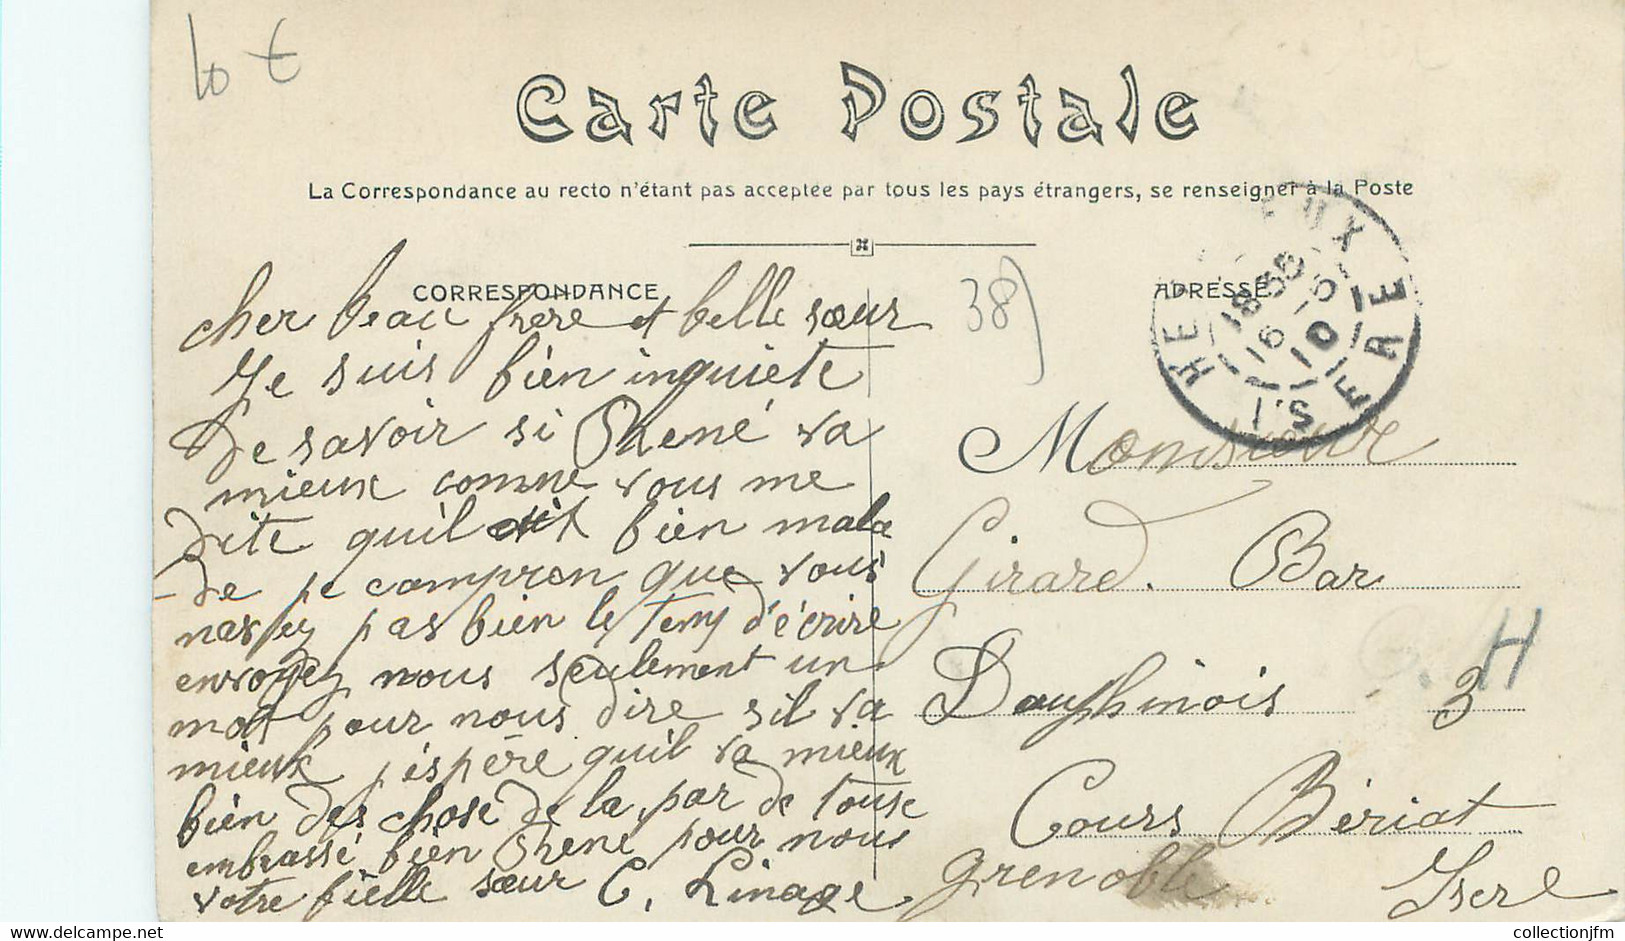 10 €
Carte Postale
La Correspondance au recto n'étant pas acceptée par tous les pays étrangers, se renseigner à la Poste
CORRESPONDANCE
ADRESSE
38)
HE EUX
1835
16 -5
10
ISERE
cher beau frere et belle sœur
Je suis bien inquiete
de savoir si Rhené va
mieux comme vous me
dite quil était bien mala
-de je compron que vous
navey pas bien le temp d'écrire
envoyez nous seulement un
mot pour nous dire sil va
mieux j'éspère quil va mieux
bien des chose de la par de touse
embrassé bien Rhene pour nous
votre fielle sœur C. Linage
Monsieur
Girard. Bar
Dauphinois 3
H
Cours Bériat
grenoble Isere
collectionjfm